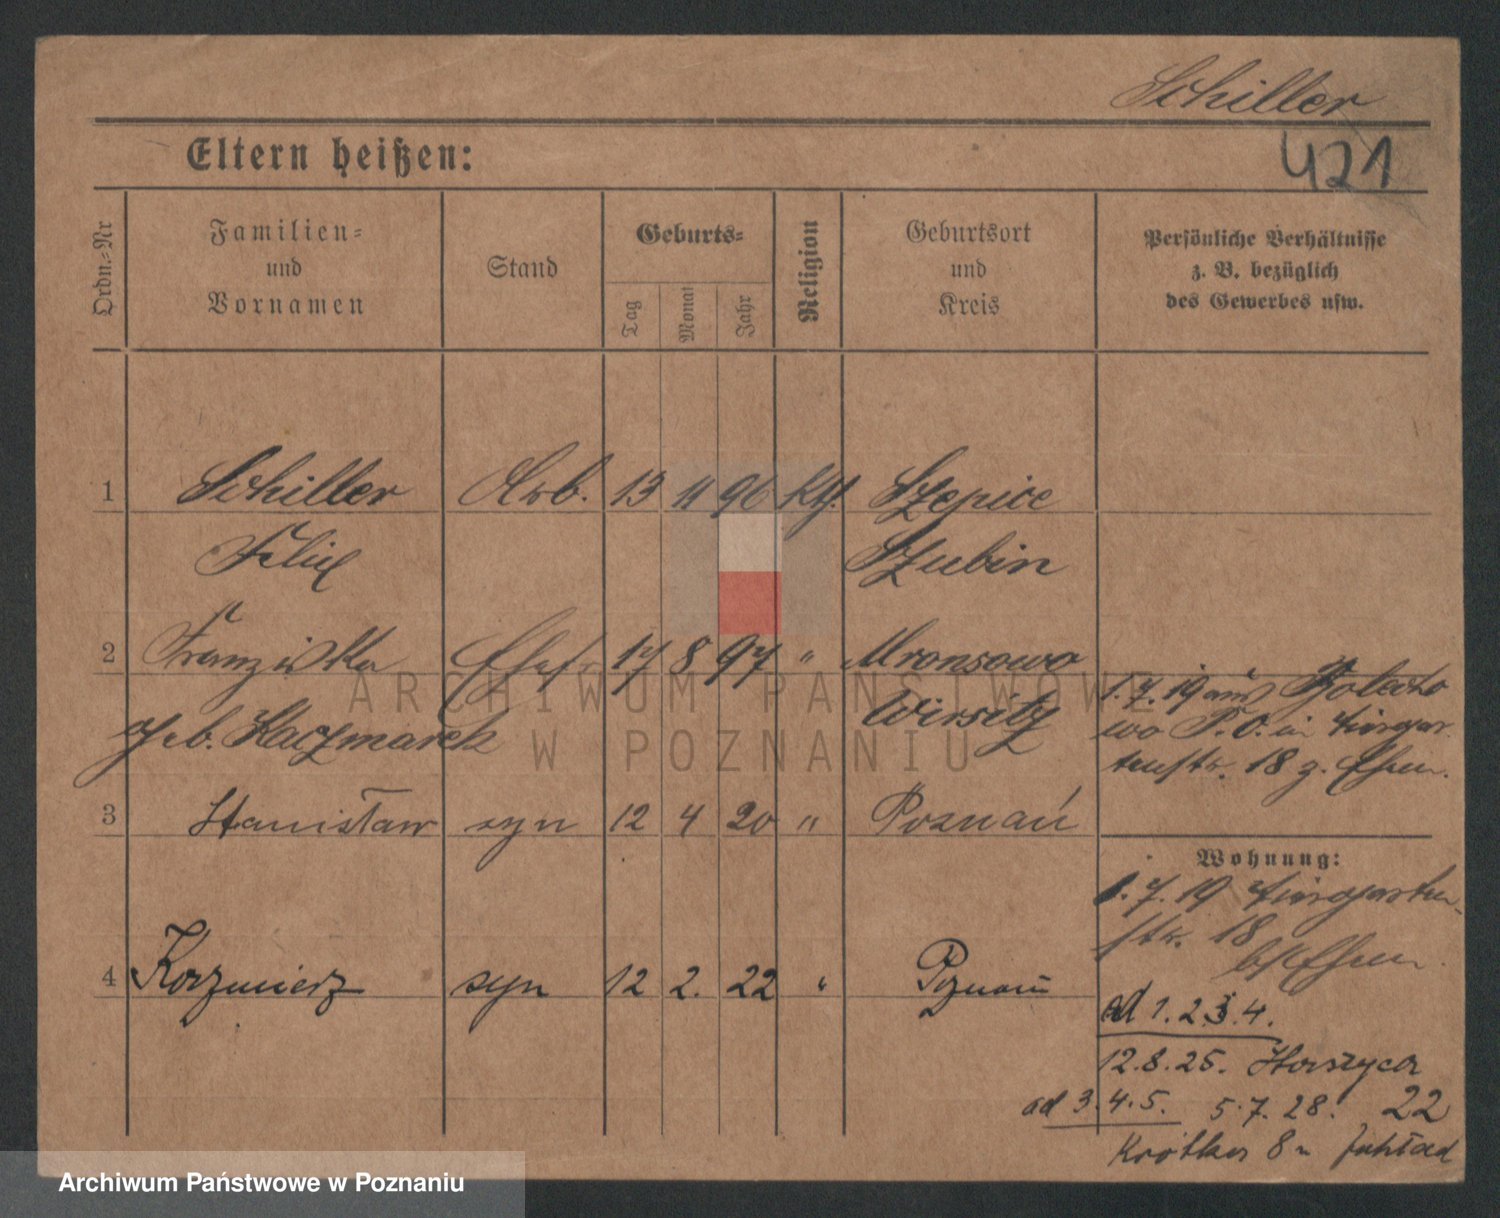 Schiller
421
Eltern heißen:
Ordn.-Nr
Familien-
und
Vornamen
Stand
Geburts-
Tag
Monat
Jahr
Religion
Geburtsort
und
Kreis
Persönliche Verhältnisse
z. B. bezüglich
des Gewerbes usw.
1 Schiller Arb. 13 11 96 kth. Szepice
Felix Szubin
2 Franziska Ehefr 17 8 97 " Mronsowo
geb. Kaczmarek Wirsitz
1.7.19 aus Bolecho
wo P.O. in Tiergar
tenstr. 18 z. Ehem.
3 Stanisław syn 12 4 20 " Poznań
Wohnung:
1.7.19 Tiergarten
str. 18
b/Ehem.
4 Kazmierz syn 12 2. 22 " Poznań
ad 1.2.3.4.
12.8.25. Strzyca
ad 3.4.5. 5.7.28. 22
Krótka 8
ARCHIWUM PAŃSTWOWE
W POZNANIU
Archiwum Państwowe w Poznaniu